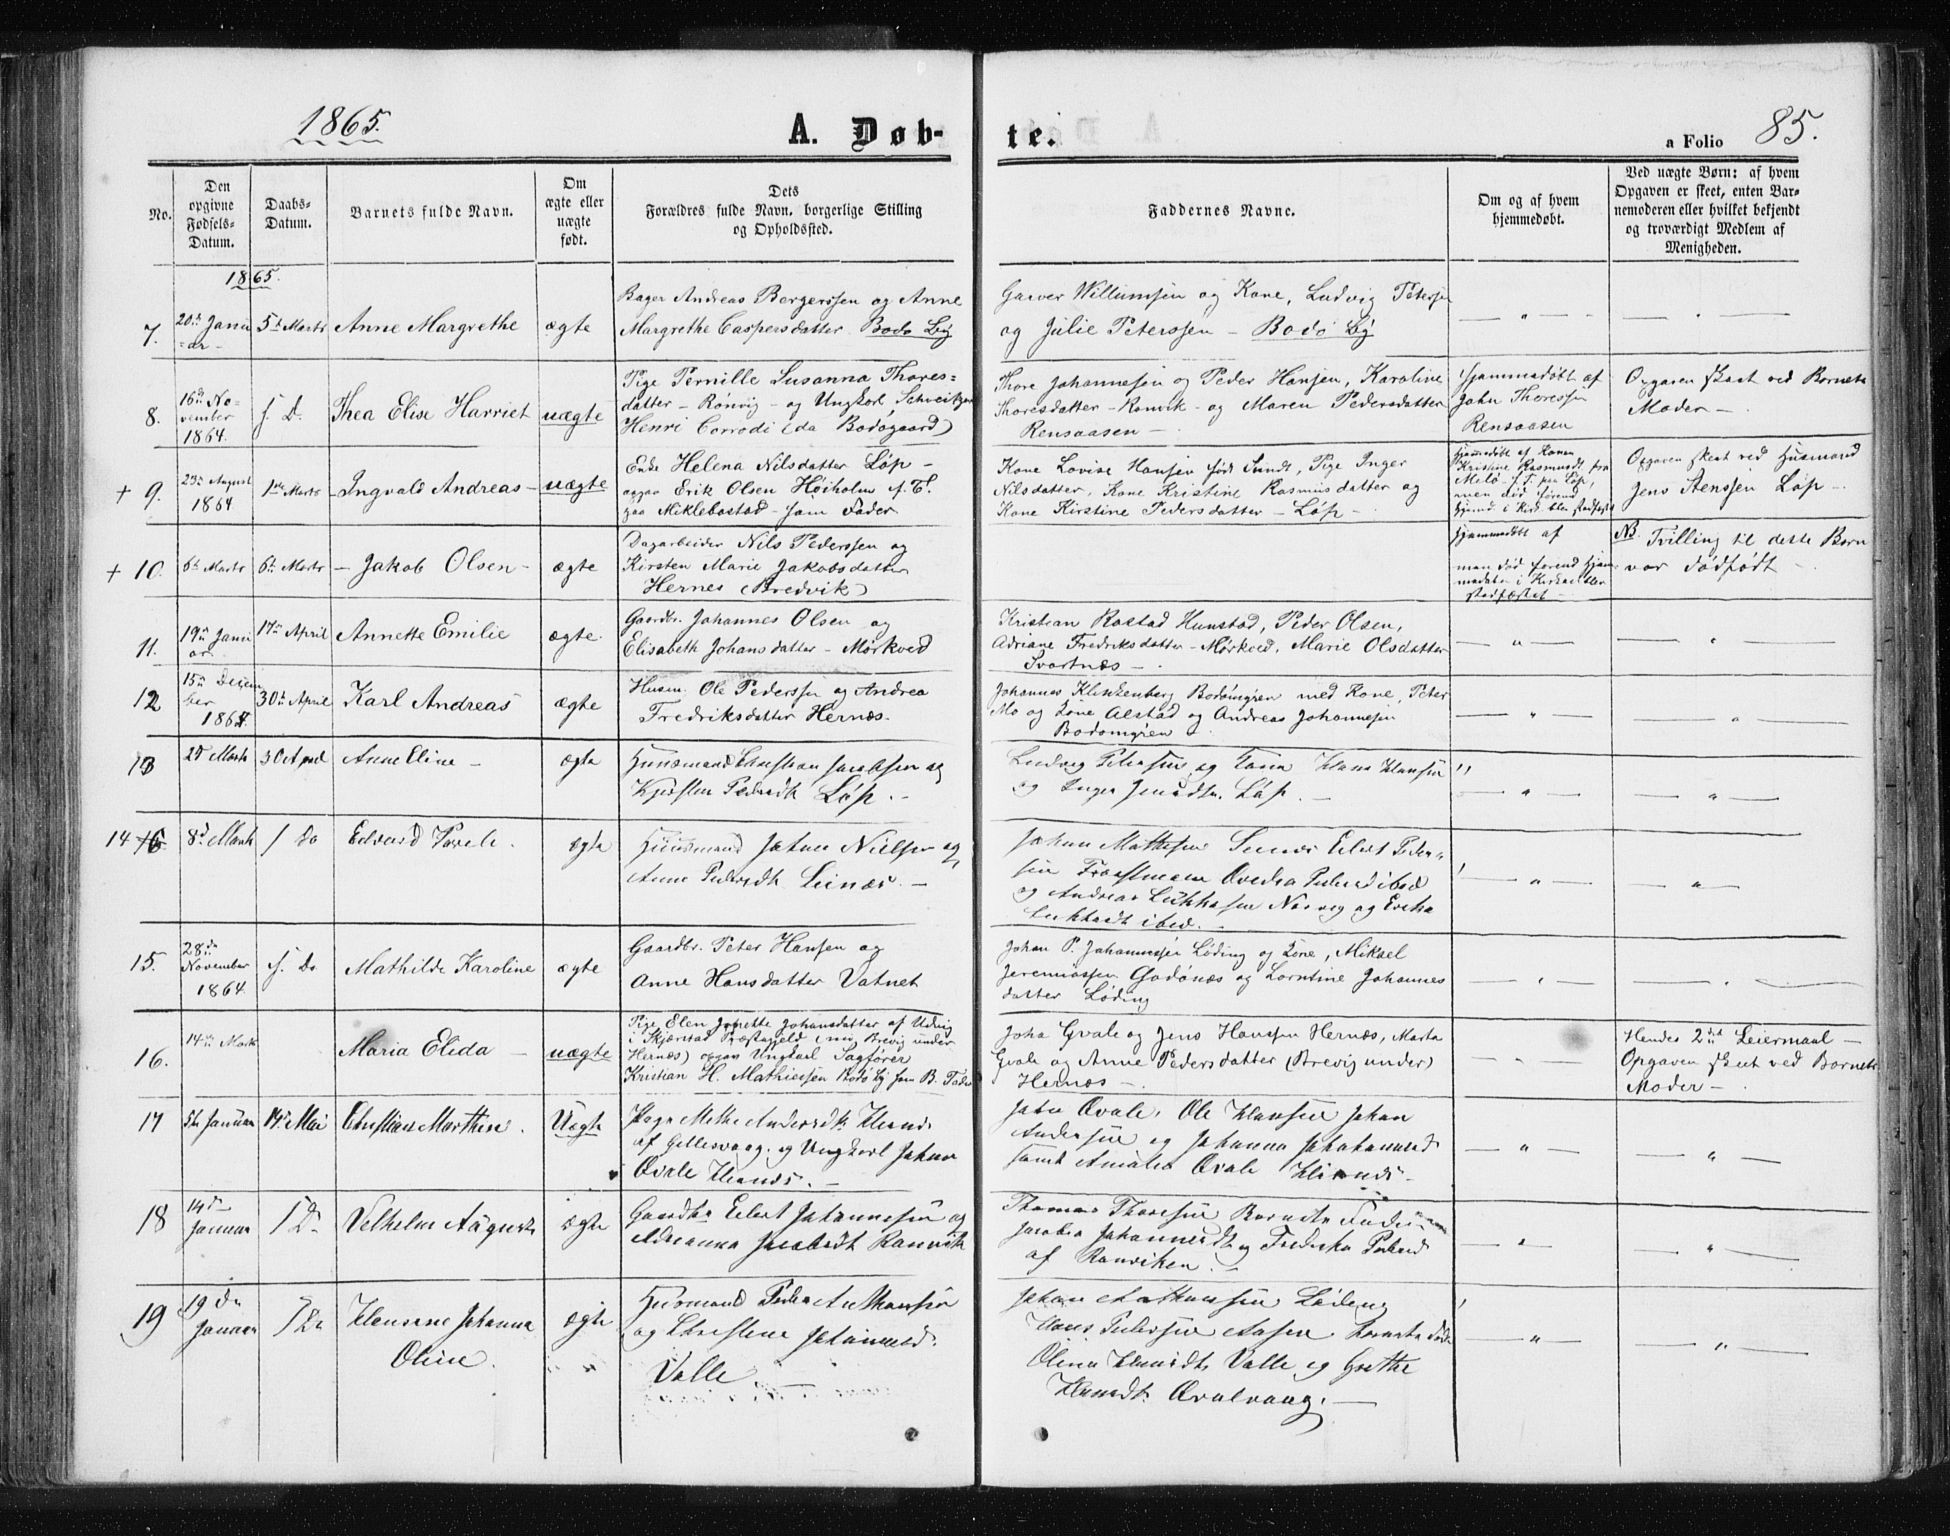 1865.
A. Døb-
te.
a Folio 85.
No.
Den
opgivne
Fødsels-
Datum.
Daabs-
Datum.
Barnets fulde Navn.
Om
ægte eller
uægte
født.
Dets
Forældres fulde Navn, borgerlige Stilling
og Opholdssted.
Faddernes Navne.
Om og af hvem
hjemmedøbt.
Ved uægte Børn: af hvem
Opgaven er skeet, enten Bar-
nemoderen eller hvilket bekjendt
og troværdigt Medlem af
Menigheden.
1865.
7.
20de Janu
=ar
5te Marts
Anne Margrethe
ægte
Bager Andreas Bergerssen og Anne
Margrethe Caspersdatter Bodø By
Garver Willumsen og Kone, Ludvig Petersen
og Julie Peterssen – Bodø By
— " —
— " —
8.
16de No-
vember
1864.
s. D.
Thea Elise Harriet
uægte
Pige Pernille Susanna Thores=
datter – Rønvig – og Ungkarl Schveitzer
Henri Corrodi (da Bodøgaard)
Thore Johannesen og Peder Hansen, Karoline
Thoresdatter – Rønvik – og Maren Pedersdatter
Rensaasen –
Hjemmedøbt af
John Thoressen
Rensaasen
Opgaven skeet ved Barnets
Moder –
+ 9.
23de August
1864
1ste Marts
– Ingvald Andreas –
uægte
Enke Helena Nilsdatter Løp –
opgav Erik Olsen Høiholm f. T.
paa Miklebostad – som Fader
Kone Lovise Hansen født Sundt, Pige Inger
Nilsdatter, Kone Kristine Rasmusdatter og
Kone Kirstine Pedersdatter – Løp –
Hjemmedøbt af Konen
Kristine Rasmusdt. fra
Melø f. T. paa Løp,
men død førend
Hjemd. i Kirk. blev stadfæstet
Opgaven skeet ved Husmand
Jens Jenssen Løp –
+ 10.
6te Marts
6te Marts
– Jakob Olsen –
ægte
Dagarbeider Nils Pederssen og
Kirsten Marie Jakobsdatter
Hernes (Bredvik)
Hjemmedøbt af
men død førend Hjem-
medaaben i Kirken blev
stadfæstet –
NB. Tvilling til dette Barn
var dødfødt –
11.
19de Janu
ar
17de April
Annette Emilie
ægte
Gaardbr. Johannes Olsen og
Elisabeth Johansdatter – Mørkved
Kristian Rostad Hunstad, Peder Olsen,
Adriane Fredriksdatter – Mørkved, Marie Olsdatter
Svartnæs –
— " —
— " —
12
15de Decem
ber
1864.
30te April
Karl Andreas
ægte
Husm. Ole Pederssen og Andrea
Fredriksdatter Hernæs.
Johannes Klinkenberg Bodømgren med Kone, Peter
Mo og Kone Alstad og Andreas Johannesen
Bodømgren
— " —
— " —
13
2d Marts
30 April
Anne Eline –
ægte
Huusmand Christian Jacobsen og
Kjersten Pedersdt. Løp. –
Ludvig Petersen og Kone Hans Hansen
og Inger Jensdtr. Løp. –
— " —
— " —
14
8d Marts
s Do
Edvard Povele.
ægte
Huusmand Johan Nielsen og
Anne Pedersdt. Seines. –
Johan Mathisen Seines Eilert Peder-
sen
og Andreas
ibid. –
— " —
— " —
15.
28de
November
1864.
s. Do
Mathilde Karoline
ægte
Gaardbr. Peter Hansen og
Anne Hansdatter Vatnet
Johan P. Johannessen Løding og Kone, Mikael
Jeremiassen Godønæs og Lorntine Johannes
datter Løding
— " —
— " —
16.
14de Marts
Maria Elida –
uægte
Pige Elen Jonette Johansdatter af Udvig
i Skjerstad Præstegjeld (nu Brevig under
Hernæs) opgav Ungkarl Sagfører
Kristian H. Mathiesen Bodø By som B. Fader
Joha Qvale og Jens Hansen Hernæs, Marta
Qvale og Anne Pedersdatter (Brevig under)
Hernæs –
— " —
Hendes 2det Leiermaal –
Opgaven skeet ved Barnets
Moder –
17
5te Januar
14de Mai
Christian Marthin.
Uægte
Pige Methe Andersdt.
af Gillesvaag. og Ungkarl Johan
Qvale Hernæs. –
John Qvale, Ole Hansen Johan
Andersen og Johanna Johannesd
samt Amalia Qvale Hernæs. –
— " —
— " —
18
14de
Januar
s Do
Vilhelm August
ægte
Gaardbr Eilert Johannesen og
Adrianna Jacobsdt Rønvik
Thomas Thoresen Barnets Fader
Jacobia Johannesdt. og Fredrika Pedersd
af Rønviken. –
— " —
— " —
19
19de
Januar
s Do
Hansine Johanna
Oline.
ægte
Huusmand Peder Anthonsen
og Christine Johannesd.
Valle
Johan Løding
Hans Pedersen Aasen Barnets Fad
Olina Hansdt. Valle og Grethe
Hansdt. Qvalvaag. –
— " —
— " —